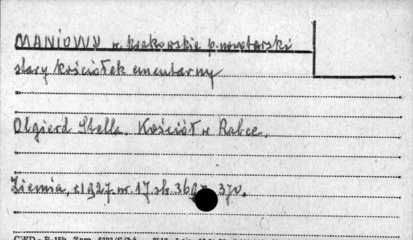 MANIOWY w. krakowskie p. nowotarski
stary kościółek cmentarny
Olgierd Stella, Kościół w Rabce,
Ziemia, r. 1927 nr. 17 str. 369- 370.